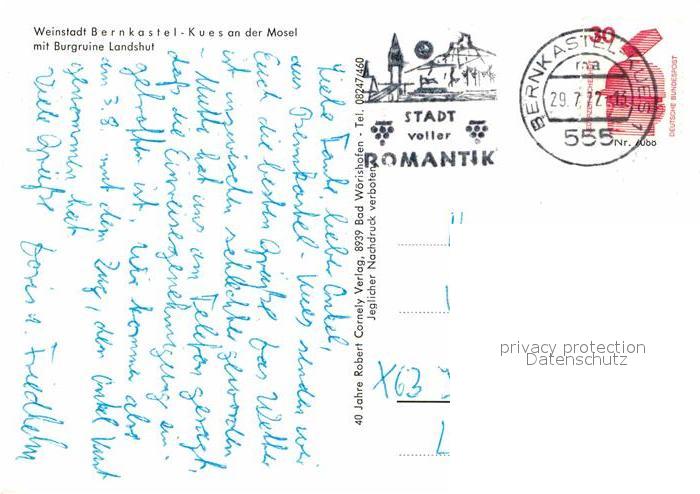 Weinstadt Bernkastel-Kues an der Mosel
mit Burgruine Landshut
Liebe Tante, lieber Onkel,
aus Bernkastel-Kues senden wir
Euch die besten Grüße. Das Wetter
ist inzwischen schlechter geworden
Mutti hat uns am Telefon gesagt,
daß die Einreisegenehmigung ein-
getroffen ist. Wir kommen also
am 3.8. mit dem Zug, den Onkel Kurt
genommen hat
Viele Grüße
Doris u. Friedhelm
40 Jahre Robert Cornely Verlag, 8939 Bad Wörishofen - Tel. 08247/460
Jeglicher Nachdruck verboten
STADT
voller
ROMANTIK
BERNKASTEL-KUES 1
ma
29.7.72
555
30
DEUTSCHE BUNDESPOST
Nr. 7088
X63
privacy protection
Datenschutz